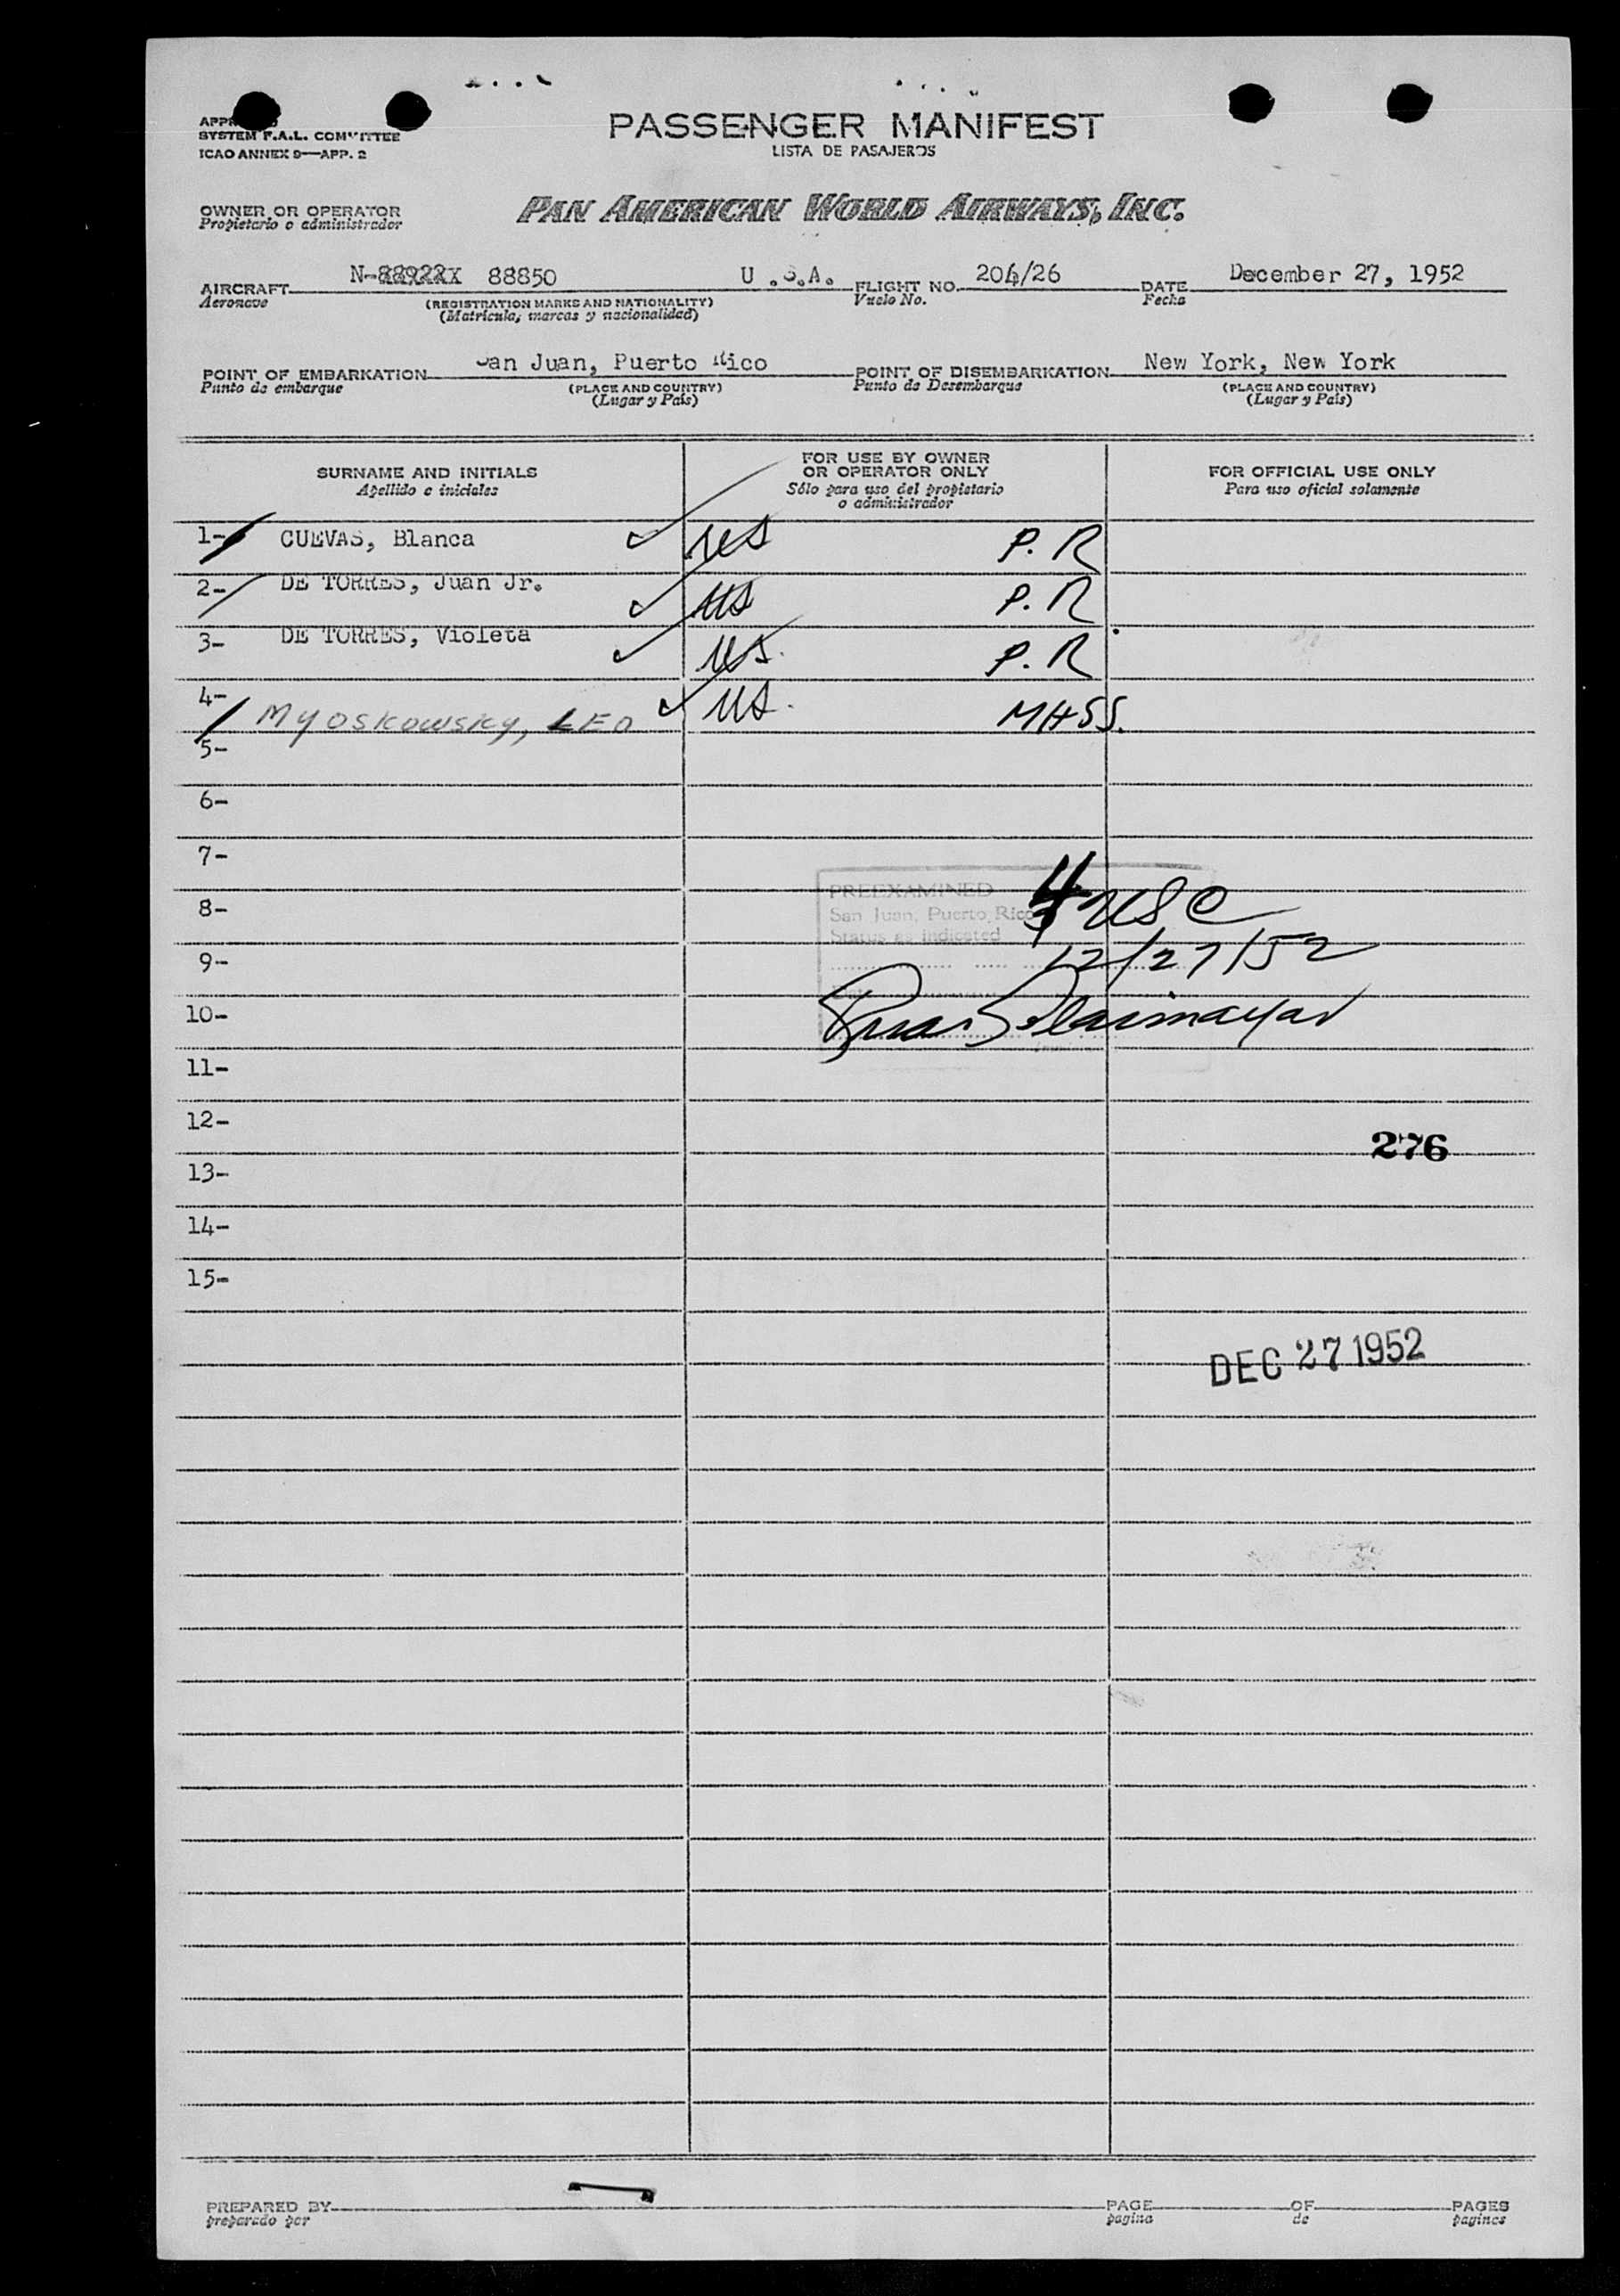 SYSTEM F.A.L. COMMITTEE
ICAO ANNEX 9—APP. 2
PASSENGER MANIFEST
LISTA DE PASAJEROS
OWNER OR OPERATOR
Propietario o administrador
PAN AMERICAN WORLD AIRWAYS, INC.
AIRCRAFT N- 88850 U .S.A. FLIGHT NO. 204/26 DATE December 27, 1952
Aeronave (REGISTRATION MARKS AND NATIONALITY) Vuelo No. Fecha
(Matrícula, marcas y nacionalidad)
POINT OF EMBARKATION San Juan, Puerto Rico POINT OF DISEMBARKATION New York, New York
Punto de embarque (PLACE AND COUNTRY) Punto de Desembarque (PLACE AND COUNTRY)
(Lugar y País) (Lugar y País)
SURNAME AND INITIALS
Apellido e iniciales
FOR USE BY OWNER
OR OPERATOR ONLY
Sólo para uso del propietario
o administrador
FOR OFFICIAL USE ONLY
Para uso oficial solamente
1- CUEVAS, Blanca US P.R
2- DE TORRES, Juan Jr. US P.R
3- DE TORRES, Violeta US. P.R
4- Myoskowsky, LEO US. MASS.
5-
6-
7-
PREEXAMINED
8- San Juan, Puerto Rico 4 USC
Status as indicated
9- 12/27/52
Date
10-
11-
12-
276
13-
14-
15-
DEC 27 1952
PREPARED BY PAGE OF PAGES
preparado por pagina de paginas